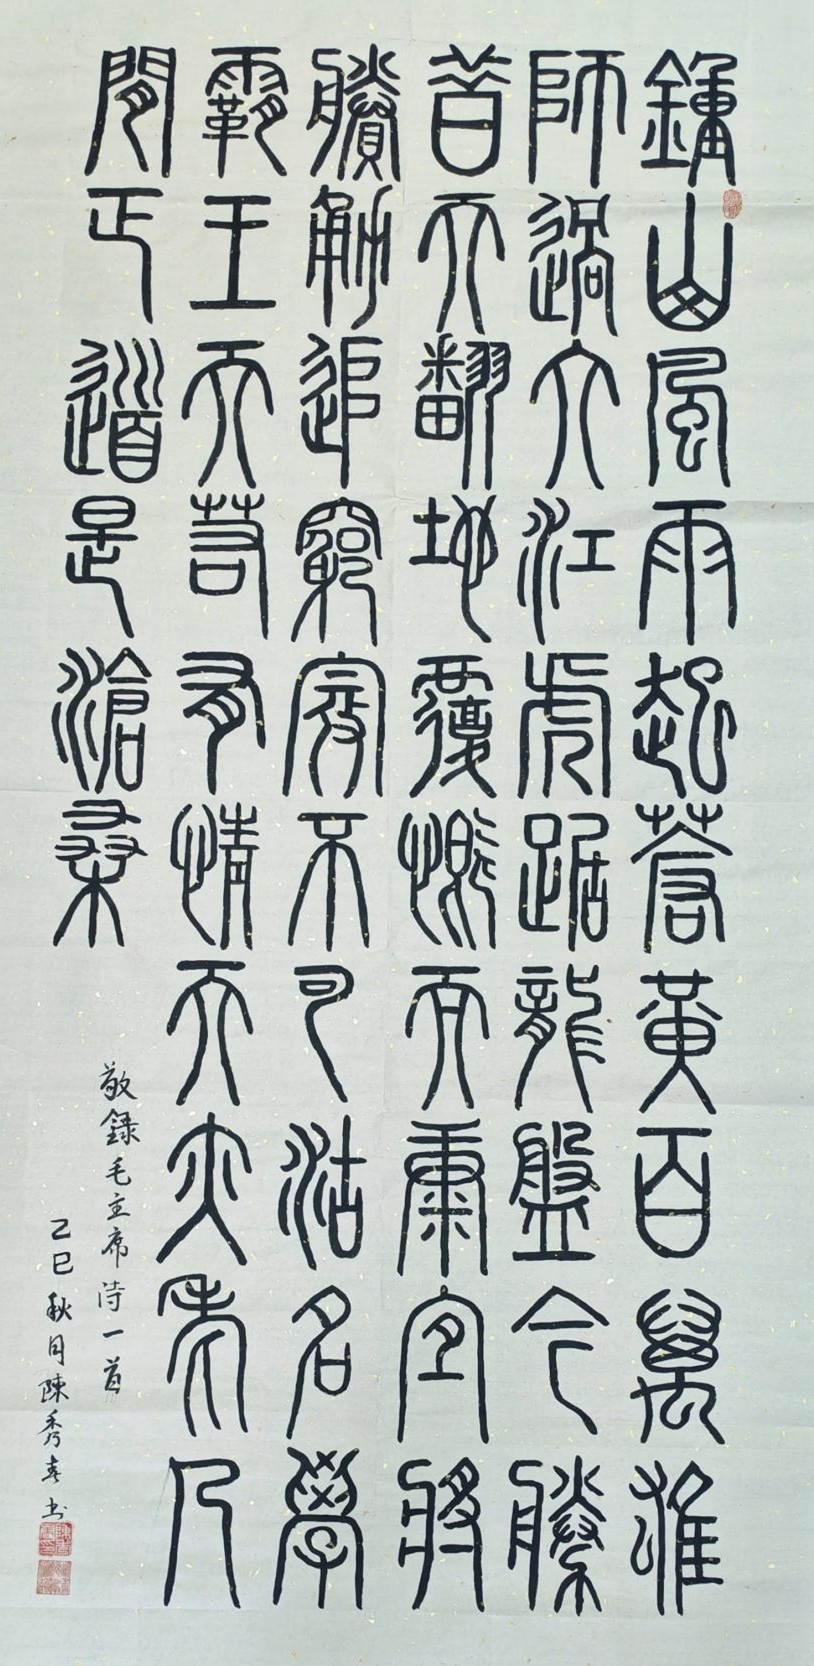 鐘山風雨起蒼黃百萬雄
師過大江虎踞龍盤今勝
昔天翻地覆慨而康宜將
賸勇追窮寇不可沽名學
霸王天若有情天亦老人
間正道是滄桑
敬錄毛主席诗一首
乙巳秋月陳秀春书